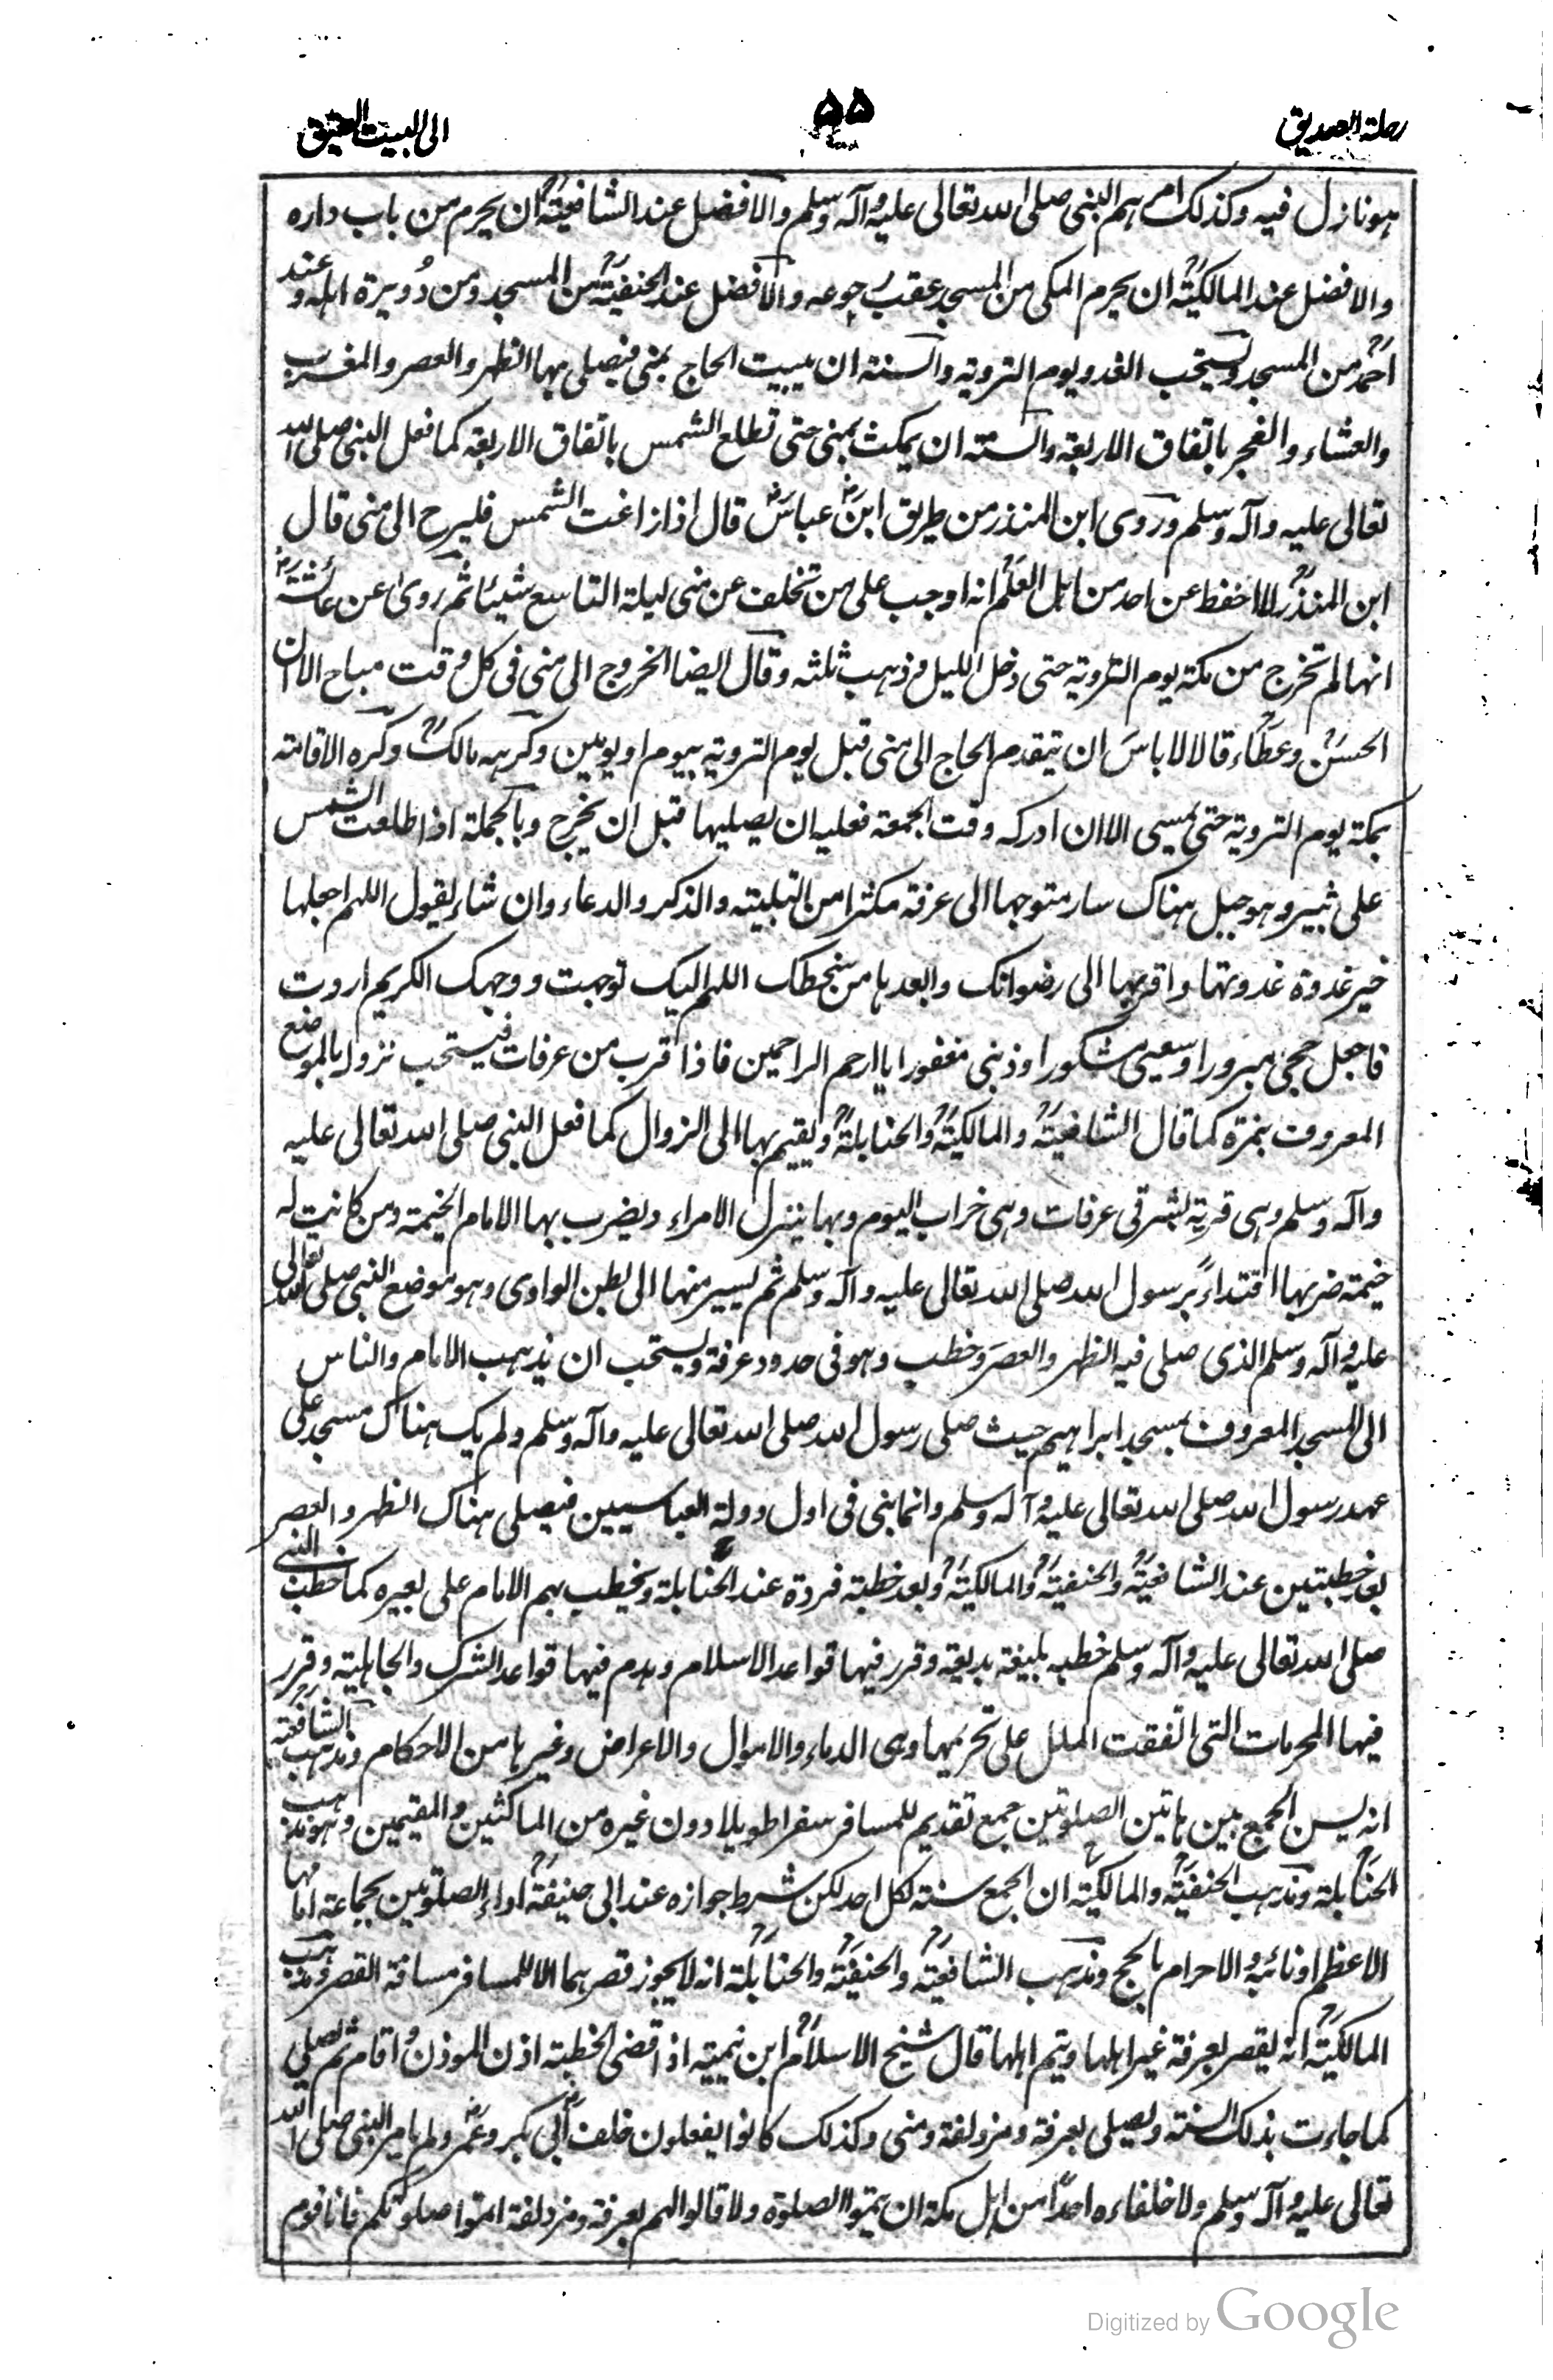 رحلة الصديق
۵۵
الى البيت العتيق
هو نازل فيه وكذلك امرهم النبى صلى الله تعالى عليه وآله وسلم والافضل عند الشافعية ان يحرم من باب داره
والافضل عند المالكية ان يحرم المكى من المسجد عقب رجوعه والافضل عند الحنفية من المسجد ومن دُويرة اهله وعند
احمد من المسجد ويستحب الغدو يوم التروية والسنة ان يبيت الحاج بمنى فيصلى بها الظهر والعصر والمغرب
والعشاء والفجر باتفاق الاربعة والسنة ان يمكث بمنى حتى تطلع الشمس باتفاق الاربعة كما فعل النبى صلى الله
تعالى عليه وآله وسلم وروى ابن المنذر من طريق ابن عباس قال اذا زاغت الشمس فليرح الى منى قال
ابن المنذر لا احفظ عن احد من اهل العلم انه اوجب على من تخلف عن منى ليلة التاسع شيئا ثم روى عن عائشة
انها لم تخرج من مكة يوم التروية حتى دخل الليل وذهب ثلثه وقال ايضا الخروج الى منى فى كل وقت مباح الا ان
الحسن وعطاء قالا لا باس ان يتقدم الحاج الى منى قبل يوم التروية بيوم او يومين وكرهه مالك وكره الاقامة
بمكة يوم التروية حتى يمسى الا ان ادركه وقت الجمعة فعليه ان يصليها قبل ان يخرج وبالجملة اذا طلعت الشمس
على ثبير وهو جبل هناك سار متوجها الى عرفة مكثرا من التلبية والذكر والدعاء وان شاء يقول اللهم اجعلها
خير غدوة غدوتها واقربها الى رضوانك وابعدها من سخطك اللهم اليك توجهت ووجهك الكريم اردت
فاجعل حجى مبرورا وسعيى مشكورا وذنبى مغفورا يا ارحم الراحمين فاذا قرب من عرفات فيستحب نزوله بالموضع
المعروف بنمرة كما قال الشافعية والمالكية والحنابلة ويقيم بها الى الزوال كما فعل النبى صلى الله تعالى عليه
وآله وسلم وهى قرية بشرقى عرفات وهى خراب اليوم وبها ينزل الامراء ويضرب بها الامام الخيمة ومن كانت له
خيمة ضربها اقتداءً برسول الله صلى الله تعالى عليه وآله وسلم ثم يسير منها الى بطن الوادى وهو موضع النبى صلى الله تعالى
عليه وآله وسلم الذى صلى فيه الظهر والعصر وخطب وهو فى حدود عرفة ويستحب ان يذهب الامام والناس
الى المسجد المعروف بمسجد ابراهيم حيث صلى رسول الله صلى الله تعالى عليه وآله وسلم ولم يك هناك مسجد على
عهد رسول الله صلى الله تعالى عليه وآله وسلم وانما بنى فى اول دولة العباسيين فيصلى هناك الظهر والعصر
بعد خطبتين عند الشافعية والحنفية والمالكية وبعد خطبة فردة عند الحنابلة ويخطب بهم الامام على بعيره كما خطب النبى
صلى الله تعالى عليه وآله وسلم خطبة بليغة بديعة وقرر فيها قواعد الاسلام وهدم فيها قواعد الشرك والجاهلية وقرر
فيها المحرمات التى اتفقت الملل على تحريمها وهى الدماء والاموال والاعراض وغيرها من الاحكام ومذهب الشافعية
انه ليس الجمع بين هاتين الصلوتين جمع تقديم للمسافر سفرا طويلا دون غيره من الماكثين والمقيمين وهو مذهب
الحنابلة ومذهب الحنفية والمالكية ان الجمع سنة لكل احد لكن شرط جوازه عند ابى حنيفة اداء الصلوتين بجماعة امامها
الاعظم او نائبه والاحرام بالحج ومذهب الشافعية والحنفية والحنابلة انه لا يجوز قصرهما الا للمسافر مسافة القصر ومذهب
المالكية انه يقصر بعرفة غير اهلها ويتم اهلها قال شيخ الاسلام ابن تيمية اذا قضى الخطبة اذن الموذن واقام ثم يصلى
كما جاءت بذلك السنة ويصلى بعرفة ومزدلفة ومنى وكذلك كانوا يفعلون خلف أبى بكر وعمر ولم يامر النبى صلى الله
تعالى عليه وآله وسلم ولا خلفاءه احدًا من اهل مكة ان يتموا الصلوة ولا قالوا لهم بعرفة ومزدلفة اتموا صلوتكم فانا قوم
Digitized by Google